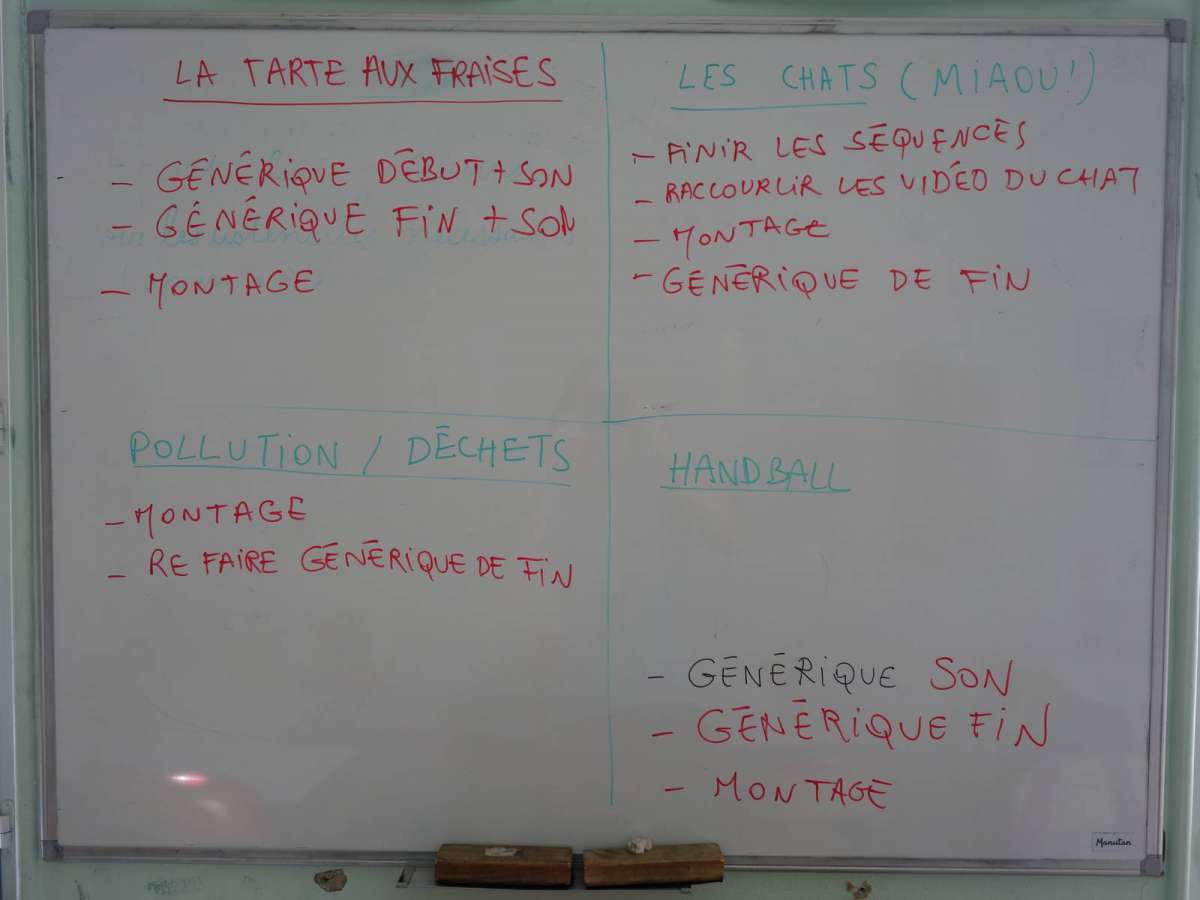 LA TARTE AUX FRAISES
- GÉNÉRIQUE DÉBUT + SON
- GÉNÉRIQUE FIN + SON
- MONTAGE
LES CHATS (MIAOU!)
- FINIR LES SÉQUENCES
- RACCOURCIR LES VIDÉO DU CHAT
- MONTAGE
- GÉNÉRIQUE DE FIN
POLLUTION / DÉCHETS
- MONTAGE
- RE FAIRE GÉNÉRIQUE DE FIN
HANDBALL
- GÉNÉRIQUE SON
- GÉNÉRIQUE FIN
- MONTAGE
Manutan